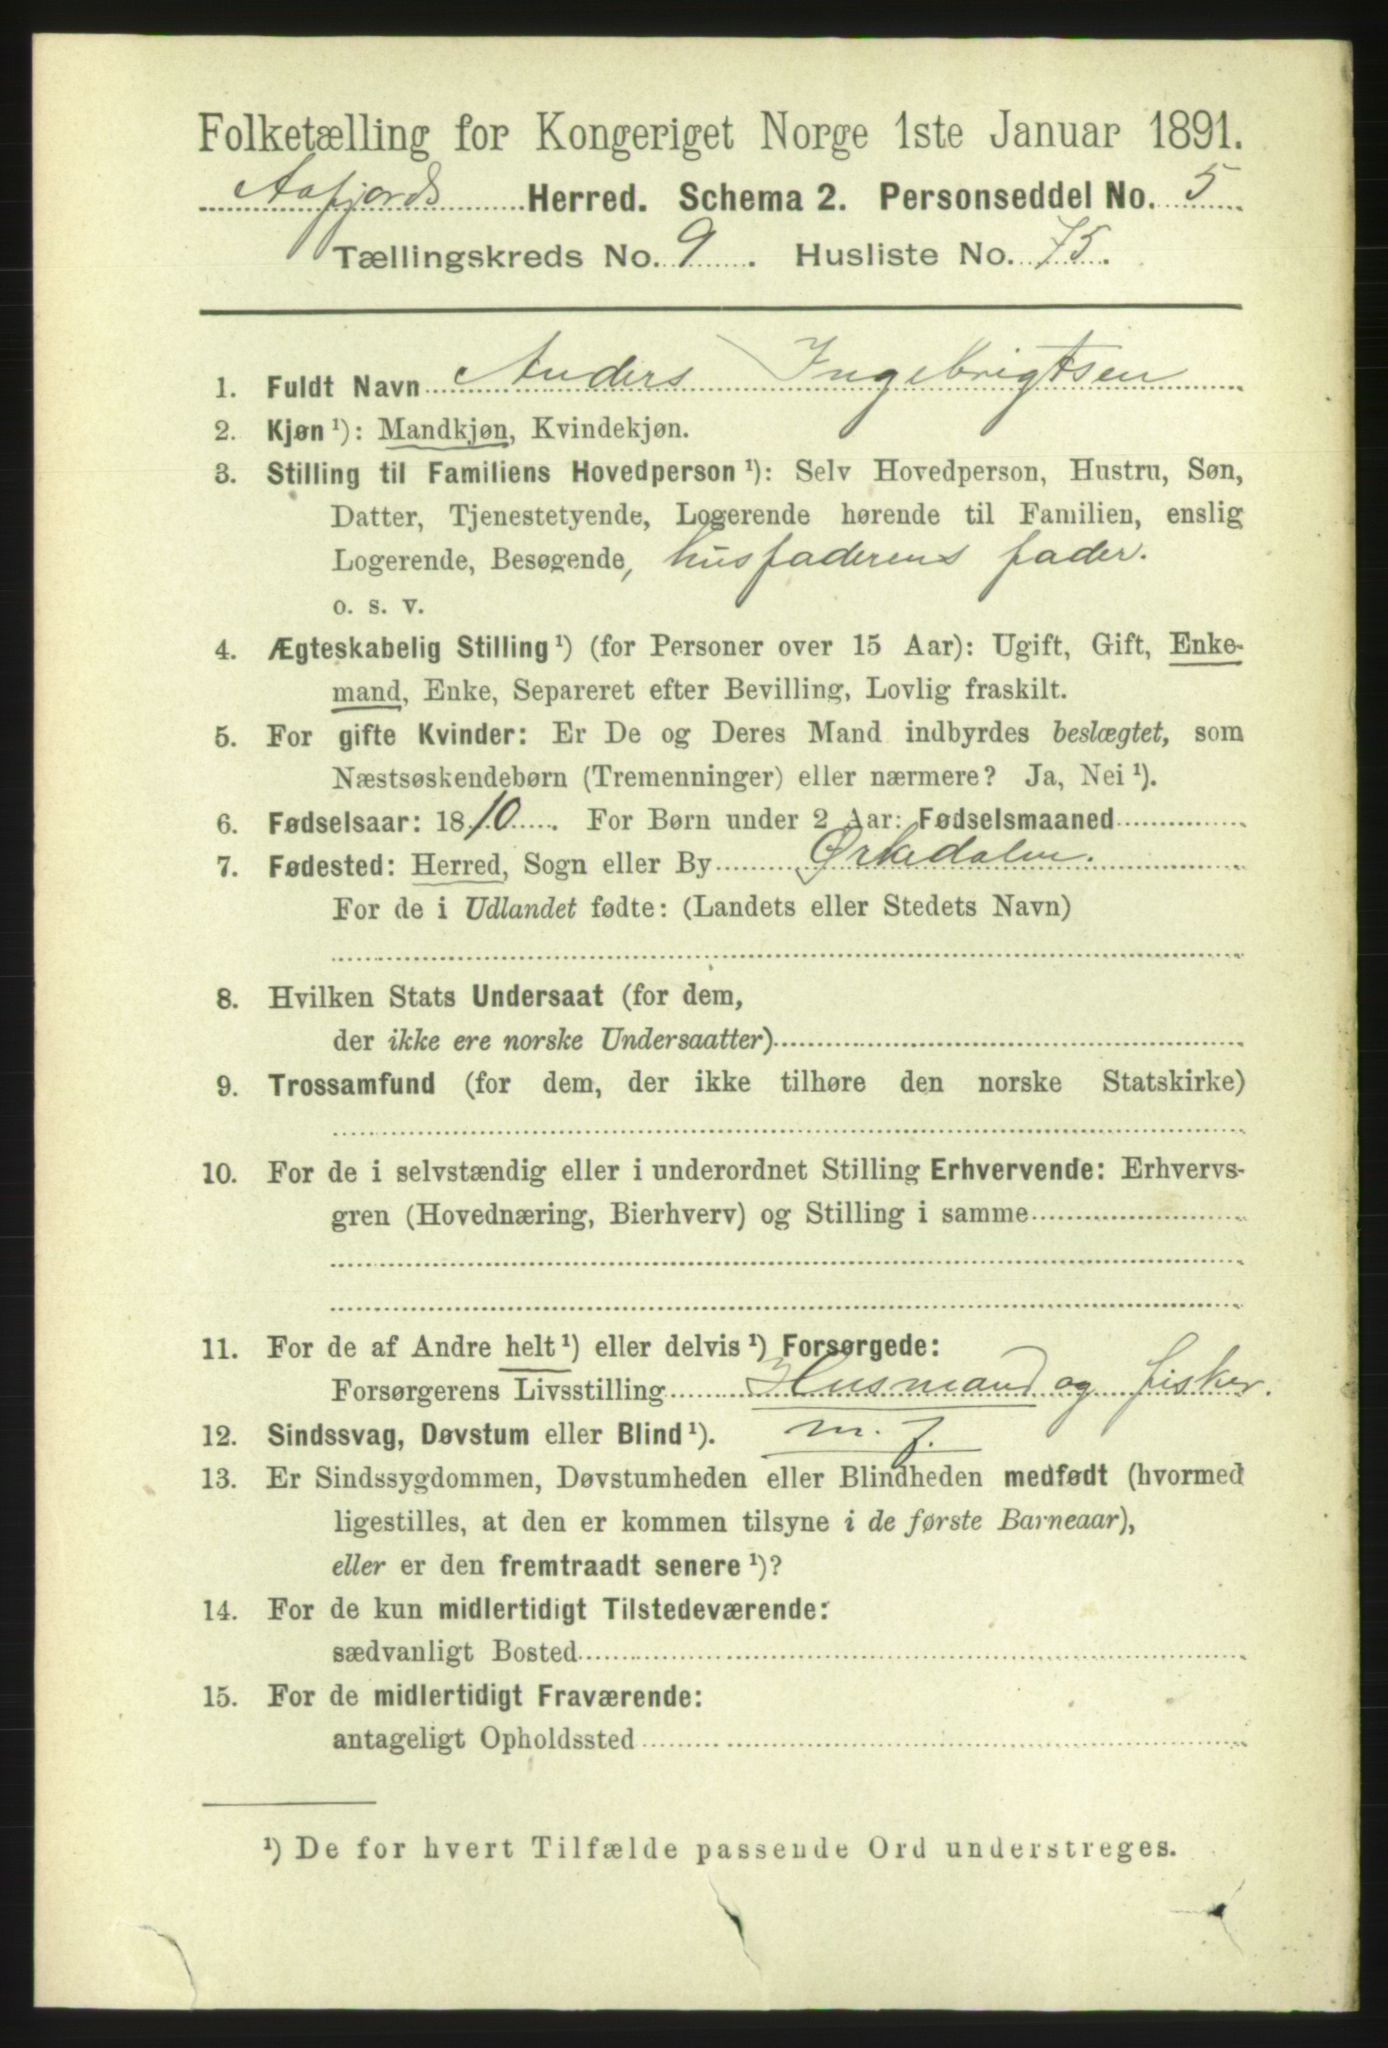 Folketælling for Kongeriget Norge 1ste Januar 1891.
Aafjords Herred. Schema 2. Personseddel No. 5
Tællingskreds No. 9. Husliste No. 75.
1. Fuldt Navn Anders Ingebrigtsen
2. Kjøn ¹): Mandkjøn, Kvindekjøn.
3. Stilling til Familiens Hovedperson ¹): Selv Hovedperson, Hustru, Søn,
Datter, Tjenestetyende, Logerende hørende til Familien, enslig
Logerende, Besøgende, husfaderens fader.
o. s. v.
4. Ægteskabelig Stilling ¹) (for Personer over 15 Aar): Ugift, Gift, Enke-
mand, Enke, Separeret efter Bevilling, Lovlig fraskilt.
5. For gifte Kvinder: Er De og Deres Mand indbyrdes beslægtet, som
Næstsøskendebørn (Tremenninger) eller nærmere? Ja, Nei ¹).
6. Fødselsaar: 1810. For Børn under 2 Aar: Fødselsmaaned
7. Fødested: Herred, Sogn eller By Ørkedalen.
For de i Udlandet fødte: (Landets eller Stedets Navn)
8. Hvilken Stats Undersaat (for dem,
der ikke ere norske Undersaatter)
9. Trossamfund (for dem, der ikke tilhøre den norske Statskirke)
10. For de i selvstændig eller i underordnet Stilling Erhvervende: Erhvervs-
gren (Hovednæring, Bierhverv) og Stilling i samme
11. For de af Andre helt ¹) eller delvis ¹) Forsørgede:
Forsørgerens Livsstilling Husmand og fisker.
12. Sindssvag, Døvstum eller Blind ¹). m. j.
13. Er Sindssygdommen, Døvstumheden eller Blindheden medfødt (hvormed
ligestilles, at den er kommen tilsyne i de første Barneaar),
eller er den fremtraadt senere ¹)?
14. For de kun midlertidigt Tilstedeværende:
sædvanligt Bosted
15. For de midlertidigt Fraværende:
antageligt Opholdssted
¹) De for hvert Tilfælde passende Ord understreges.